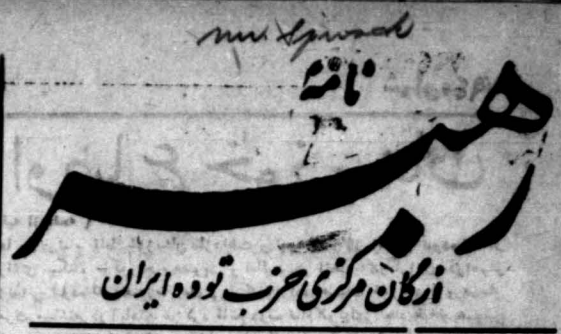 نامهٔ
رهبر
ارگان مرکزی حزب توده ایران